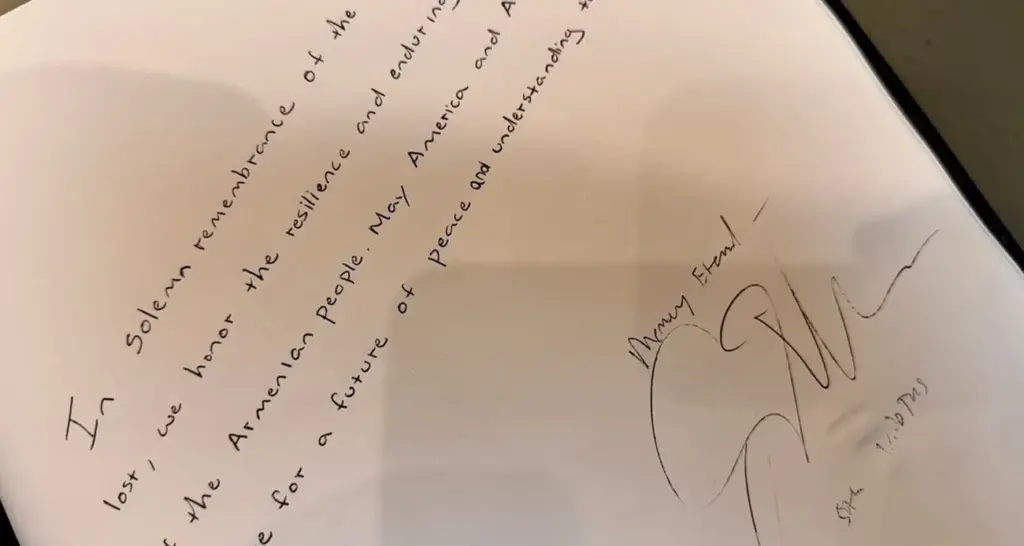 In Solemn remembrance of the
lost, we honor the resilience and enduring
the Armenian people. May America and A
e for a future of peace and understanding
Memory Eternal -